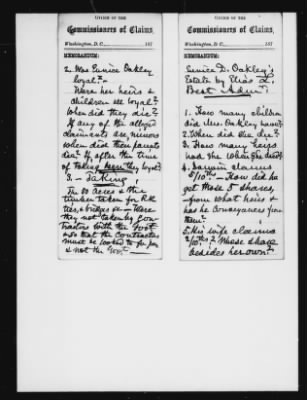 OFFICE OF THE
Commissioners of Claims,
Washington, D.C., 187
MEMORANDUM:
2. Was Eunice Oakley
loyal? -
Were her heirs &
children all loyal?
When did they die?
If any of the alleged
claimants are minors
when did their parents
die? If after the time
of taking were they loyal?
3. - Taking,
The 80 acres & the
timber taken for R.R.
ties, & bridges &c - Were
they not taken by Con-
tractors with the Govt
& so that the Contractors
must be looked to for pay
& not the Govt. -
OFFICE OF THE
Commissioners of Claims,
Washington, D.C., 187
MEMORANDUM:
Eunice D. Oakley's
Estate by Elias L.
Best Admr.
1. How many children
did Mrs. Oakley have?
2. When did she die?
3. How many heirs
had she when she died?
4. Darwin claims
5/10ths - How did he
get those 5 shares,
from what heirs &
has he conveyances from
them?
5. His wife claims
2/10ths? Whose share
besides her own?